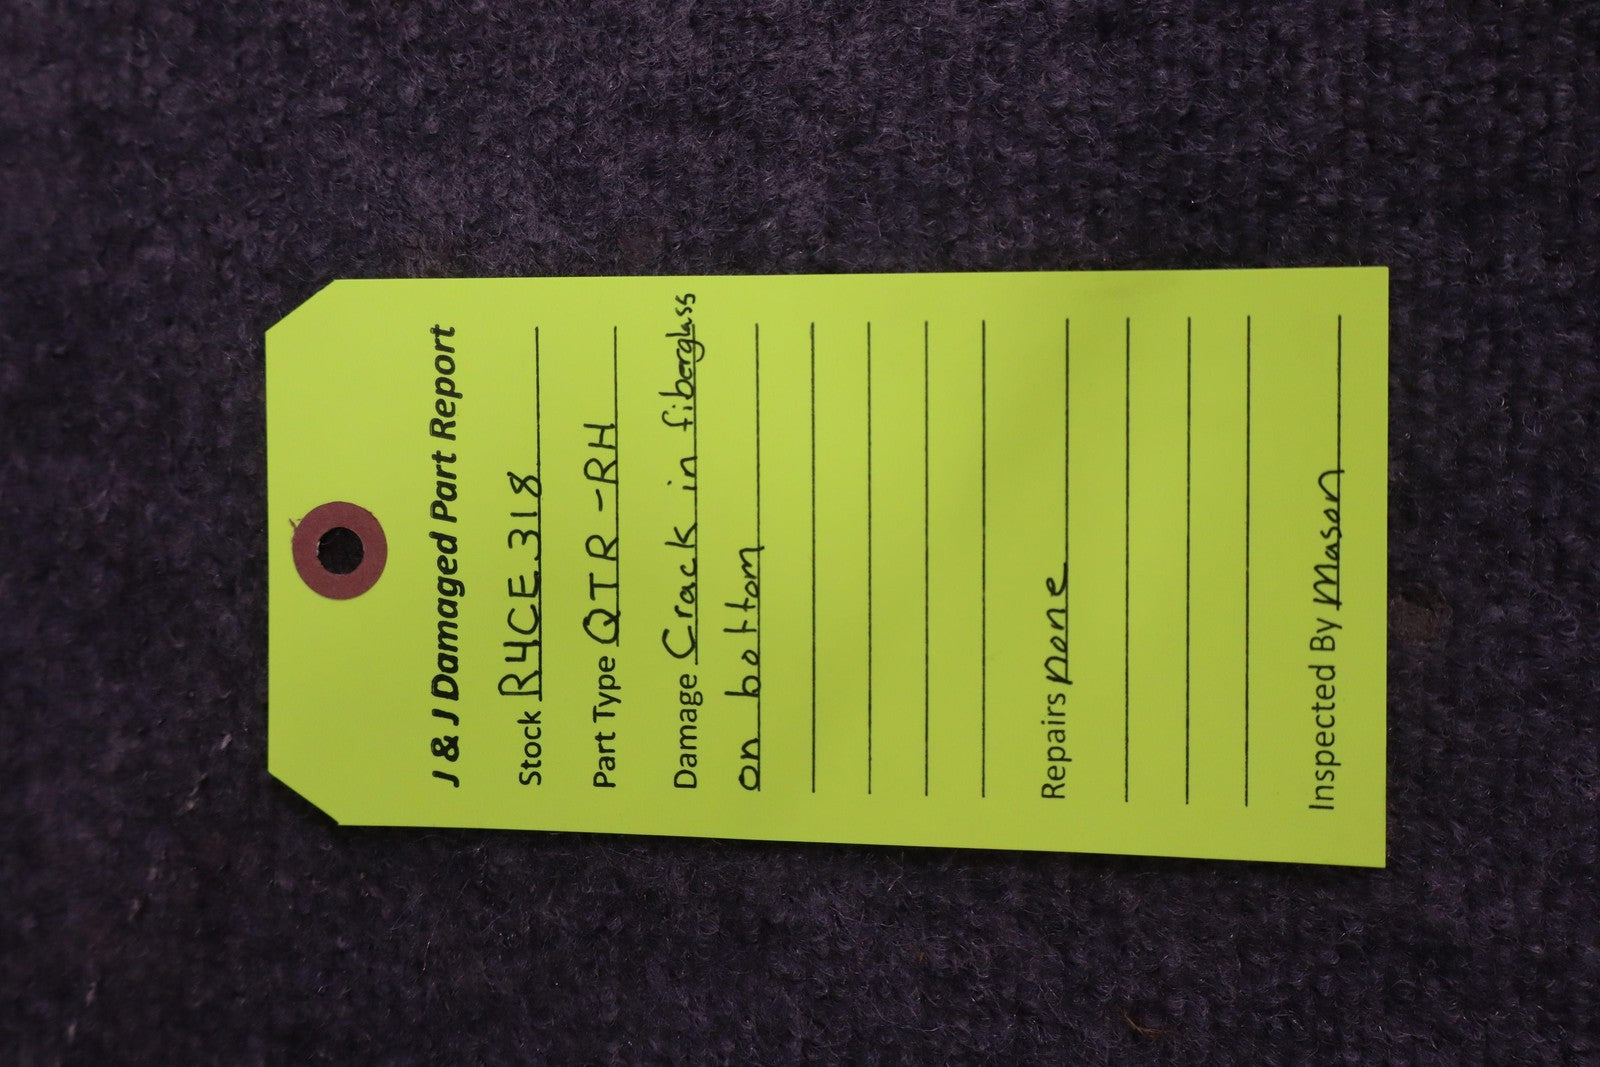 J & J Damaged Part Report
Stock R4CE318
Part Type QTR-RH
Damage Crack in fiberglass
on bottom
Repairs none
Inspected By Mason